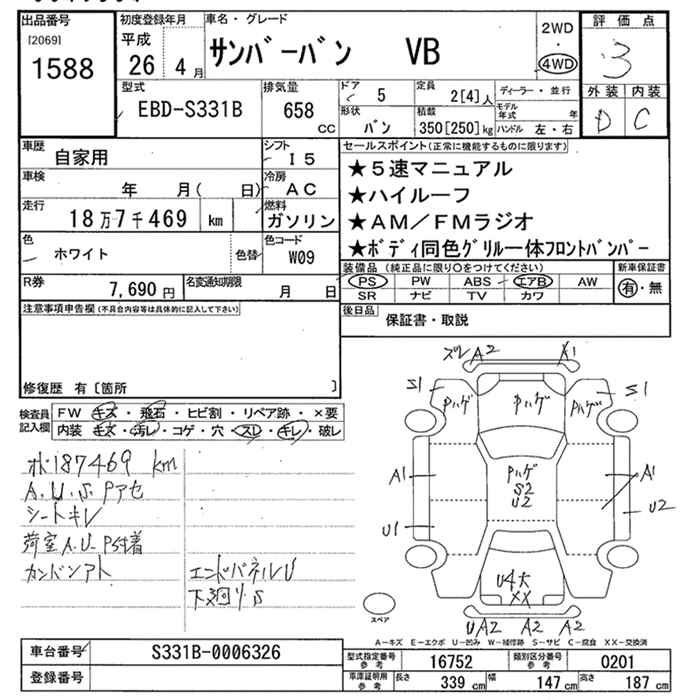 出品番号
[2069]
1588
初度登録年月
平成
26 4 月
車名・グレード
サンバーバン VB
2WD
・
4WD
評価点
3
外装 内装
D C
型式
EBD-S331B
排気量
658 cc
ドア
5
形状
バン
定員
2[4]人
積載
350[250]kg
ディーラー・並行
モデル年式 年
ハンドル 左・右
車歴
自家用
シフト
I5
車検
年 月( 日)
冷房
AC
走行
18万7千469 km
燃料
ガソリン
色
ホワイト
色替
色コード
W09
R券
7,690 円
名変通知期限
月 日
セールスポイント(正常に機能するものに限ります)
★5速マニュアル
★ハイルーフ
★AM/FMラジオ
★ボディ同色グリル一体フロントバンパー
装備品(純正品に限り○をつけてください)
PS PW ABS エアB AW
SR ナビ TV カワ
新車保証書
有・無
後日品
保証書・取説
注意事項申告欄(不具合内容等は具体的に記入して下さい)
修復歴 有〔箇所 〕
検査員記入欄
FW キズ・飛石・ヒビ割・リペア跡・×要
内装 キズ・汚レ・コゲ・穴・スレ・キレ・破レ
187469 km
A.U.S Pアセ
シートキレ
荷室A.U P付着
カンバンアト
エンドパネルU
下廻りS
ズレA2 X1
S1 Pハゲ Pハゲ Pハゲ S1
A1 Pハゲ S2 U2 A1
U2
U1
U4大
XX
UA2 A2 A2
スペア
A-キズ E-エクボ U-凹み W-補修跡 S-サビ C-腐食 XX-交換済
車台番号
S331B-0006326
登録番号
型式指定番号
参考
16752
類別区分番号
参考
0201
車庫証明用
参考
長さ 339 cm
幅 147 cm
高さ 187 cm